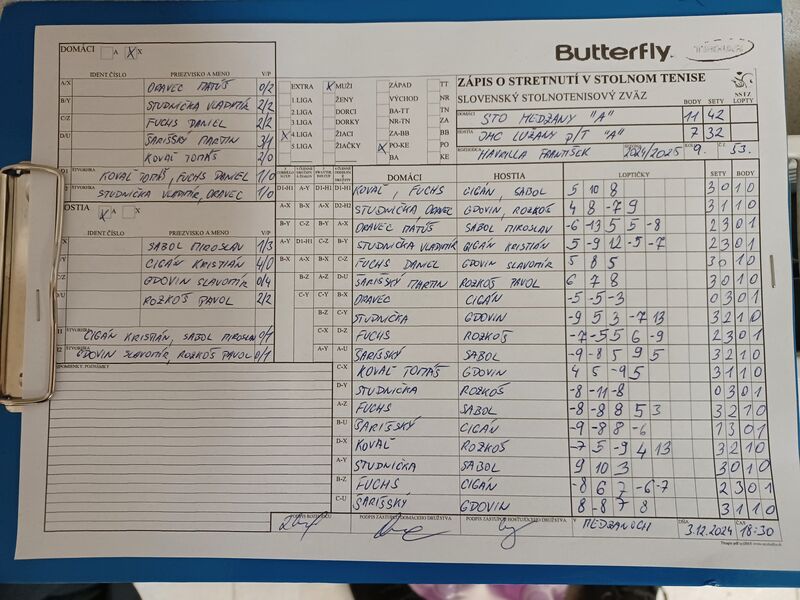 DOMÁCI A X X
Butterfly
IDENT ČÍSLO PRIEZVISKO A MENO V/P
A/X ORAVEC MATÚŠ 0/2
B/Y STUDNIČKA VLADIMÍR 2/2
C/Z FUCHS DANIEL 2/2
D/U ŠARIŠSKÝ MARTIN 3/1
KOVAĽ TOMÁŠ 2/0
D1 ŠTVORHRA KOVAĽ TOMÁŠ, FUCHS DANIEL 1/0
ŠTVORHRA STUDNIČKA VLADIMÍR, ORAVEC 1/0
HOSTIA X A X
IDENT ČÍSLO PRIEZVISKO A MENO V/P
SABOL MIROSLAV 1/3
CIGÁN KRISTIÁN 4/0
GDOVIN SLAVOMÍR 0/4
ROZKOŠ PAVOL 2/2
ŠTVORHRA CIGÁN KRISTIÁN, SABOL MIROSLAV 0/1
ŠTVORHRA GDOVIN SLAVOMÍR, ROZKOŠ PAVOL 0/1
PRIPOMIENKY, POZNÁMKY
EXTRA X MUŽI ZÁPAD TT
1.LIGA ŽENY VÝCHOD NR
2.LIGA DORCI BA-TT TN
3.LIGA DORKY NR-TN ZA
X 4.LIGA ŽIACI ZA-BB BB
5.LIGA ŽIAČKY X PO-KE PO
BA KE
ZÁPIS O STRETNUTÍ V STOLNOM TENISE
SLOVENSKÝ STOLNOTENISOVÝ ZVÄZ
SSTZ
BODY SETY LOPTY
DOMÁCI STO MEDZANY "A" 11 42
HOSTIA OMC LUŽANY P/T "A" 7 32
ROZHODCA HAVRILLA FRANTIŠEK 2024/2025 9. 53.
DOMÁCI HOSTIA LOPTIČKY SETY BODY
D1-H1 KOVAĽ, FUCHS CIGÁN, SABOL 5 10 8 3 0 1 0
STUDNIČKA, ORAVEC GDOVIN, ROZKOŠ 4 8 -7 9 3 1 1 0
ORAVEC MATÚŠ SABOL MIROSLAV -6 -13 5 5 -8 2 3 0 1
STUDNIČKA VLADIMÍR CIGÁN KRISTIÁN 5 -9 12 -5 -7 2 3 0 1
FUCHS DANIEL GDOVIN SLAVOMÍR 5 8 5 3 0 1 0
ŠARIŠSKÝ MARTIN ROZKOŠ PAVOL 6 7 8 3 0 1 0
ORAVEC CIGÁN -5 -5 -3 0 3 0 1
STUDNIČKA GDOVIN -9 5 3 -7 13 3 2 1 0
FUCHS ROZKOŠ -7 -5 5 6 -9 2 3 0 1
ŠARIŠSKÝ SABOL -9 -8 5 9 5 3 2 1 0
C-X KOVAĽ TOMÁŠ GDOVIN 4 5 -9 5 3 1 1 0
D-Y STUDNIČKA ROZKOŠ -8 -11 -8 0 3 0 1
A-Z FUCHS SABOL -8 -8 8 5 3 3 2 1 0
B-U ŠARIŠSKÝ CIGÁN -9 -8 8 -6 1 3 0 1
D-X KOVAĽ ROZKOŠ -7 5 -9 4 13 3 2 1 0
A-Y STUDNIČKA SABOL 9 10 3 3 0 1 0
B-Z FUCHS CIGÁN -8 6 7 -6 -7 2 3 0 1
C-U ŠARIŠSKÝ GDOVIN 8 -8 7 8 3 1 1 0
PODPIS ROZHODCU PODPIS ZÁSTUPCU DOMÁCEHO DRUŽSTVA PODPIS ZÁSTUPCU HOSŤUJÚCEHO DRUŽSTVA V MEDZANOCH DŇA 3.12.2024 ČAS 18:30